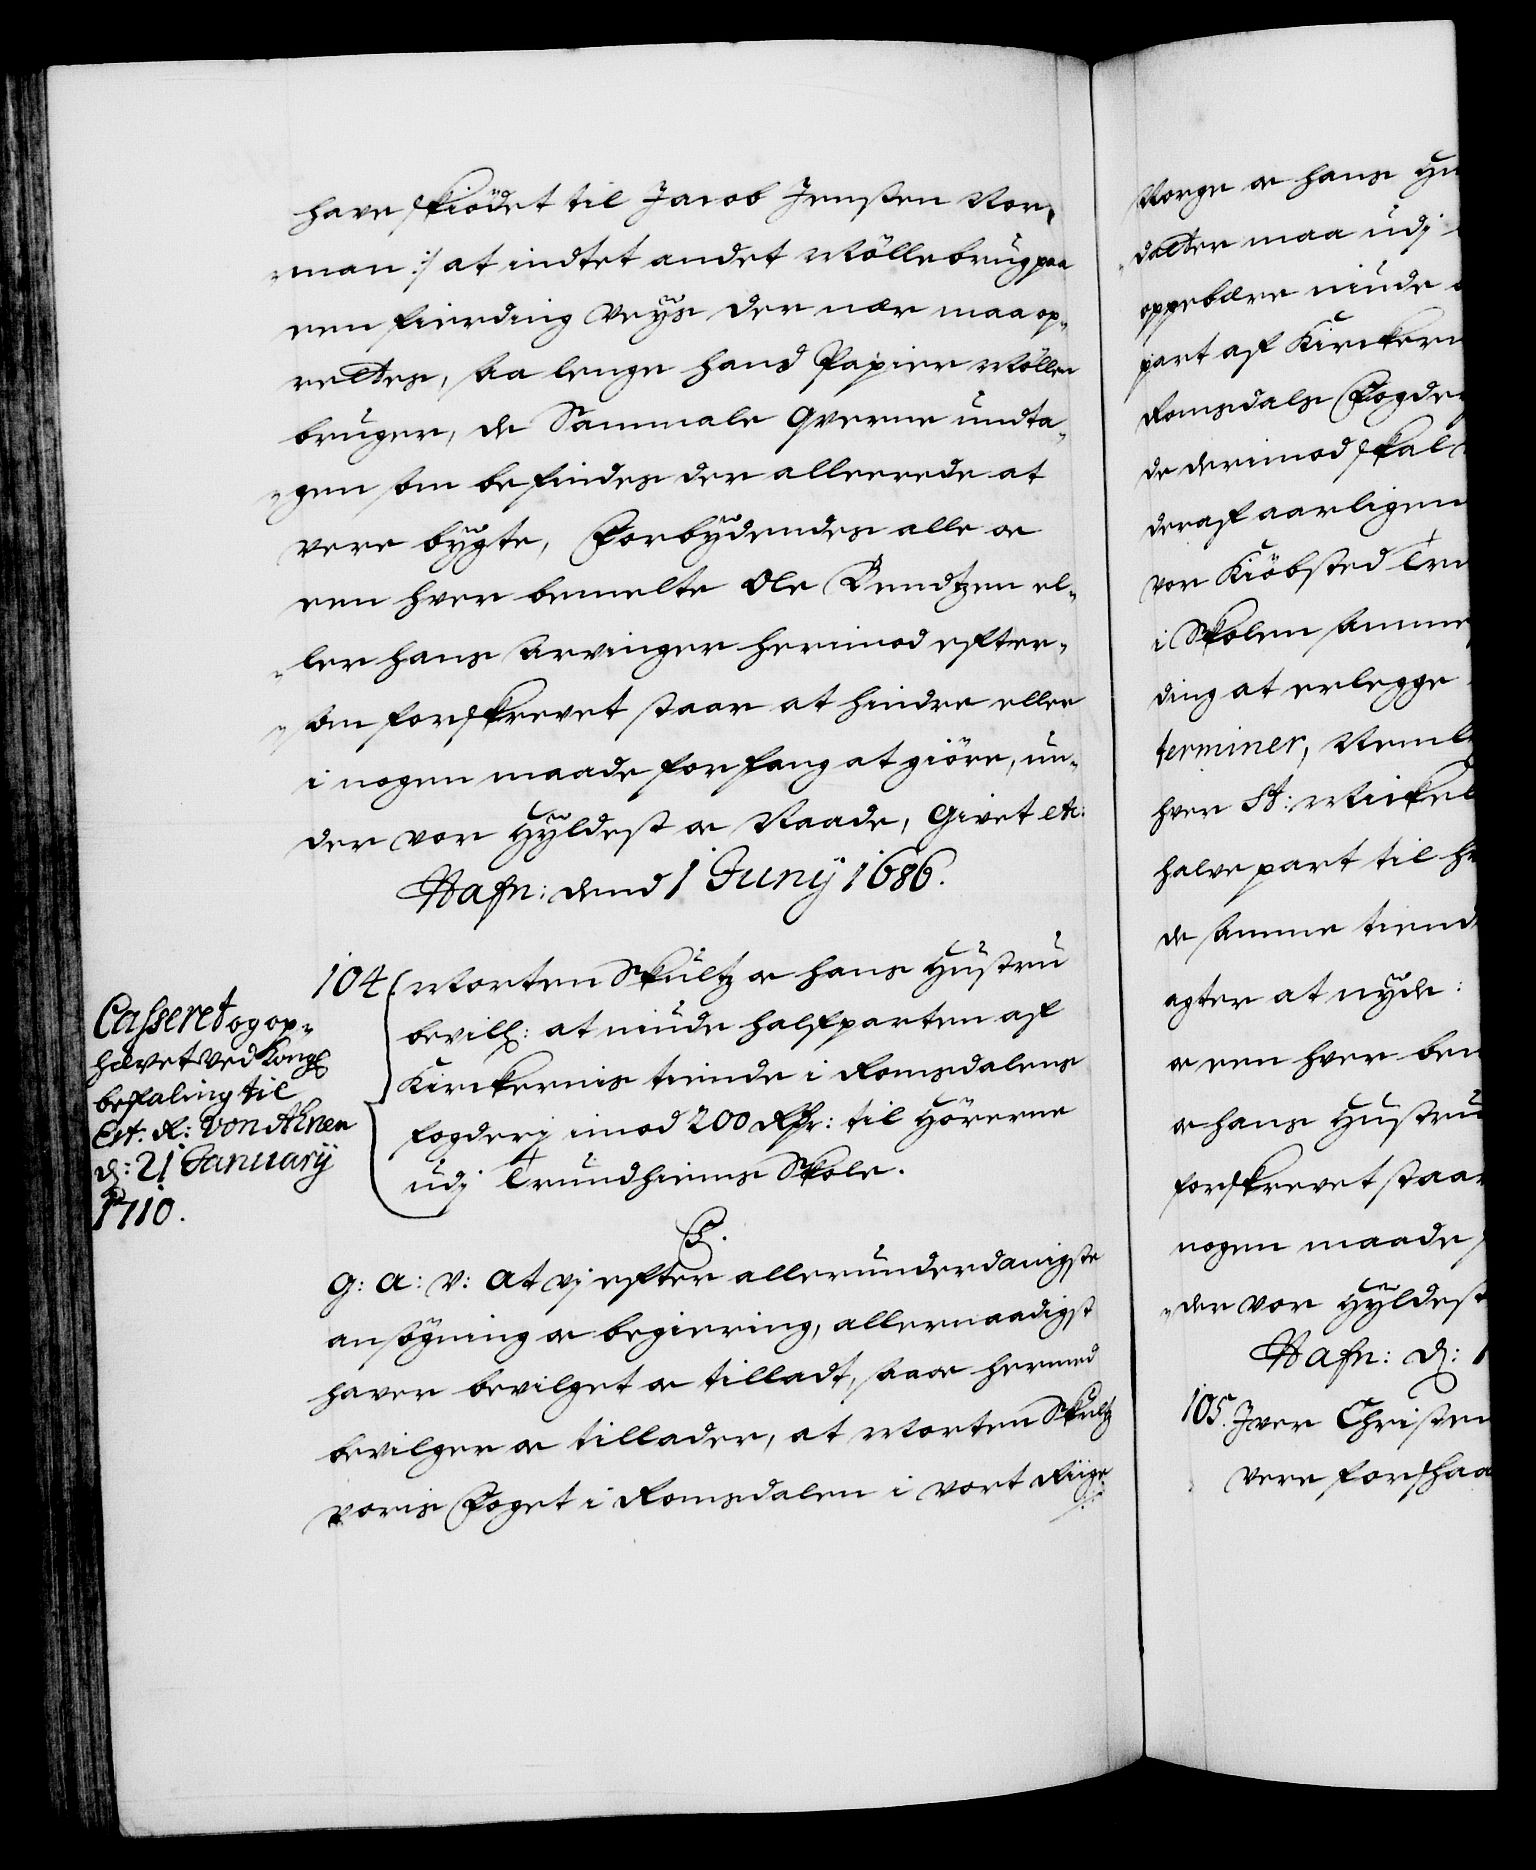 have skiödet til Jacob Jenssen Nor-
man :/ at indtet andet Möllebrug paa
een fierding Veÿs der nær maa op-
rettes, saa lenge hand Papier Möllen
bruger, de Gammale Qverne undta-
gen som befindes der allereede at
vere bÿgte, Forbÿdendes alle og
een hver bemelte Ole Bendtzen el-
ler hans Arvinger herimod efter-
som forskrevet staar at hindre eller
i nogen maade forfang at giöre, un-
der vor Hÿldest og Naade, Givet etc:
Hafn: dend 1 Junÿ 1686.
104. Morten Skultz og hans Hustru
bevill: at niude halfparten af
Kirckernis tiende i Romsdalens
fogderj imod 200 Rdr: til Hörerne
udj Trundhiems Skole.
Casseret og op-
hævet ved Kongl
befaling til
Etr. R: Von Ahnen
d: 21 Januarÿ
1710.
C5.
G: A: V: At vj efter allerunderdanigste
ansögning og begiering, allernaadigst
haver bevilget og tilladt, saa og hermed
bevilger og tillader, at Morten Skultz
voris Foget i Romsdalen i vort Riige
Norge og hans Hu
datter maa udj
oppebære niude
part af Kirckern
Romsdals Fogder
de derimod skal
deraf aarligen
vor Kiöbsted Tru
i Skolen samme
ding at erlegge
terminer, Neml
hver St: Mickel
halve part til h
de samme tiend
agter at nÿde:
og een hver bem
og hans Hustru
forskrevet staar
nogen maade
der vor Hÿldest
Hafn: d: 1
105. Iver Christen
vere forshaa